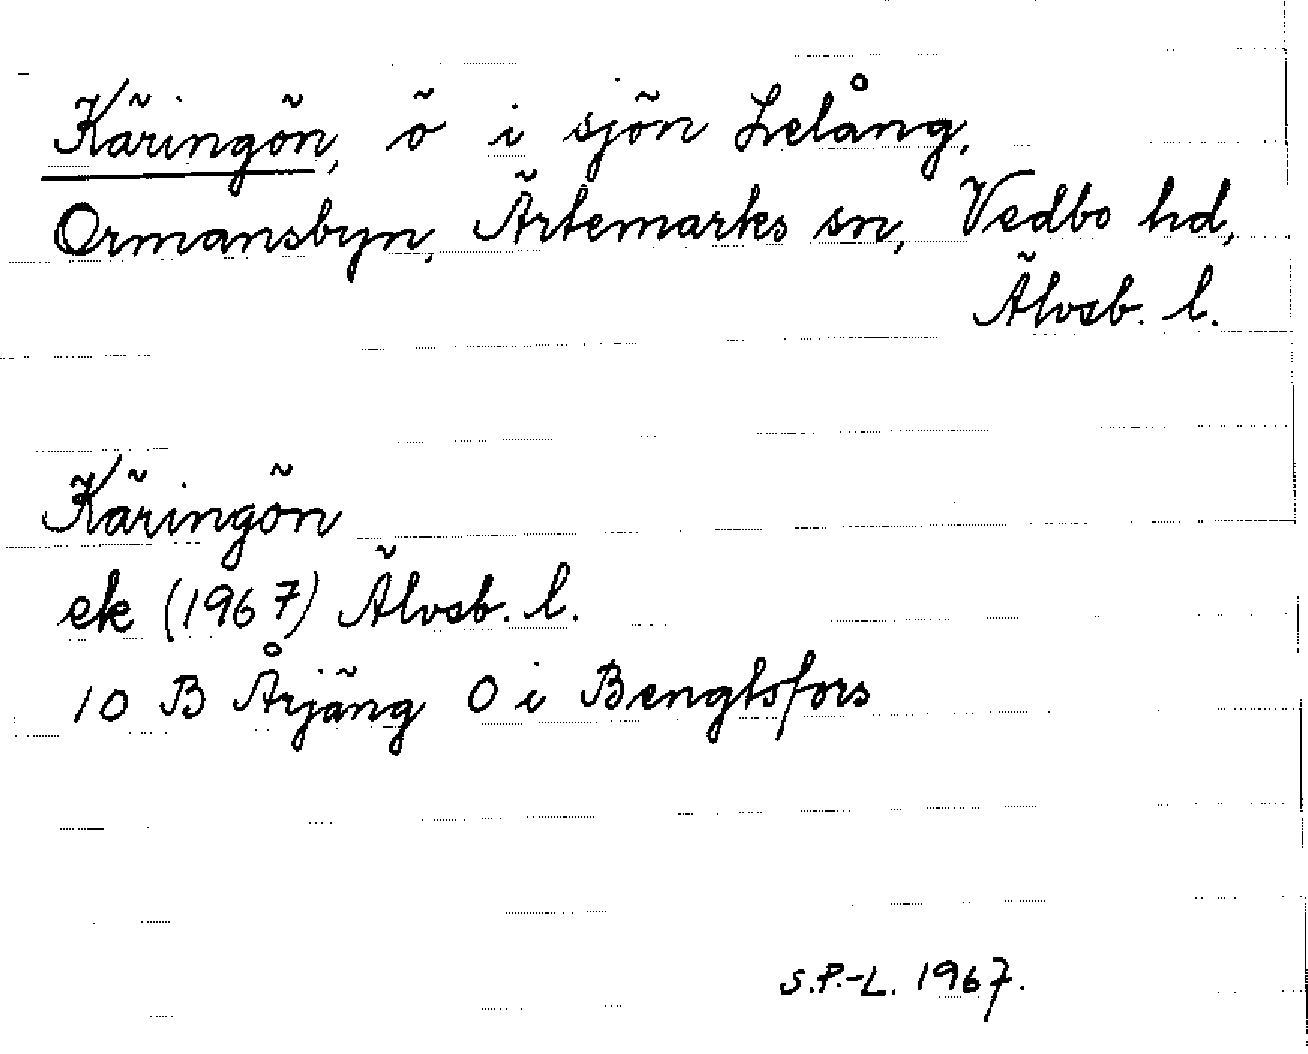 Käringön, ö i sjön Lelång,
Ormansbyn, Ärtemarks sn, Vedbo hd,
Älvsb. l.
Käringön
ek (1967) Älvsb. l.
10 B Årjäng 0 i Bengtsfors
S.P.-L. 1967.